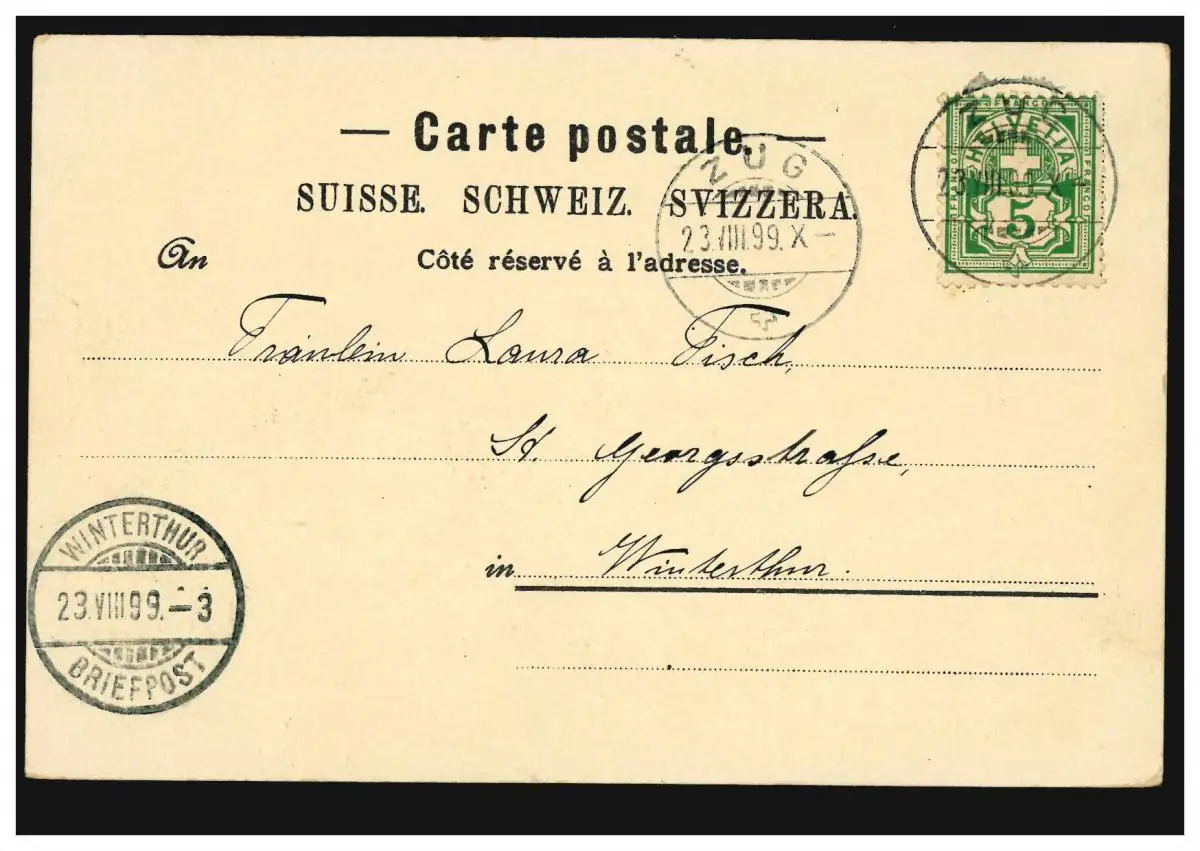 — Carte postale. —
SUISSE. SCHWEIZ. SVIZZERA.
An
Côté réservé à l'adresse.
ZUG
23.VIII.99.X–
ZUG
23.VIII.99.X–
FRANCO
HELVETIA
FRANCO
FRANCO
5
Fräulein Laura Fisch,
St. Georgsstrasse,
in Winterthur.
WINTERTHUR
23.VIII99.–3
BRIEFPOST